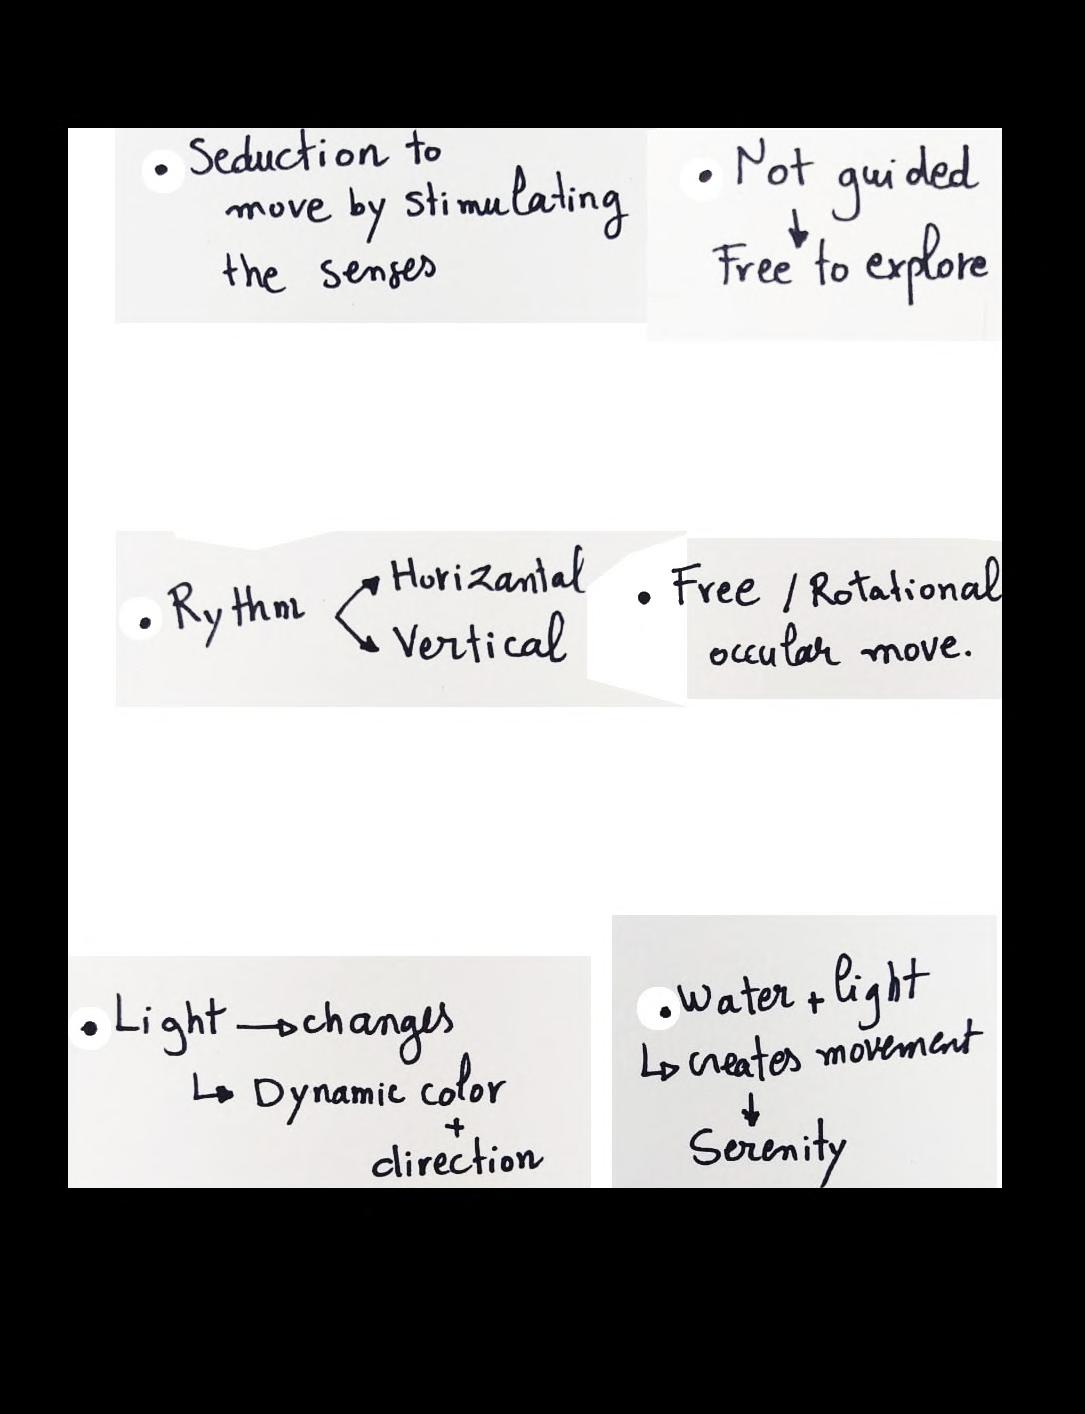 • Seduction to
move by stimulating
the senses
• Not guided
↓
Free to explore
• Rythm
Horizantal
Vertical
• Free / Rotational
occular move.
• Light → changes
↳ Dynamic color
+
direction
• Water + light
↳ creates movement
↓
Serenity